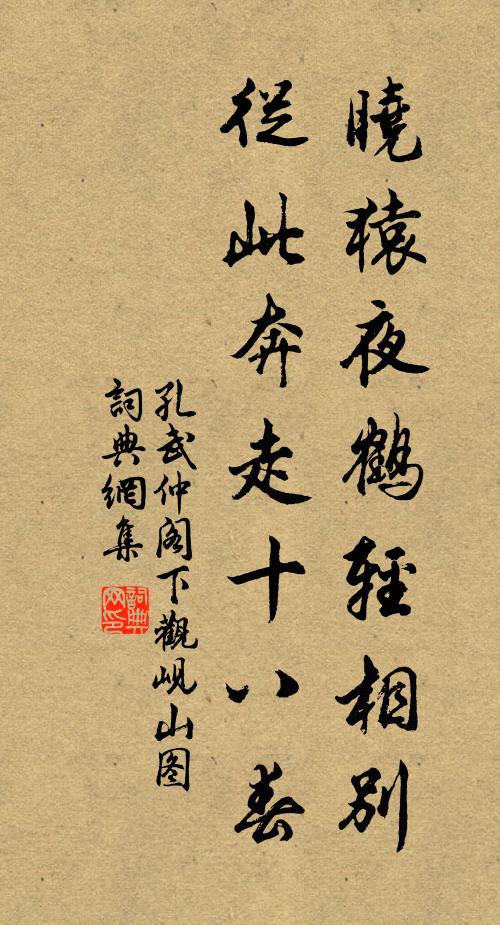 曉猿夜鶴輕相別
從此奔走十八春
孔武仲阁下觀岘山图
詞典網集
詞典
网印